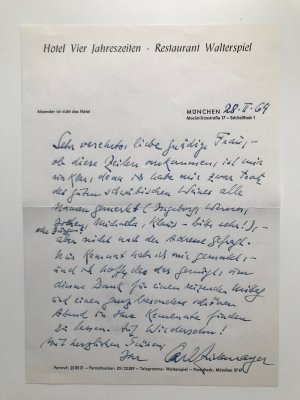 Hotel Vier Jahreszeiten · Restaurant Walterspiel
Absender ist nicht das Hotel
MÜNCHEN 28. II. 64
Maximilianstraße 17 – Schließfach 1
Sehr verehrte, liebe gnädige Frau, –
ob diese Zeilen ankommen, ist mir
unklar, denn ich habe mir zwar trotz
des guten schwäbischen Weines alle
Namen gemerkt (Ingeborg, Werner,
Michaela, Klaus – bitte sehr!), –
aber nicht nach der Adresse gefragt.
Kemenate hab ich mir gemerkt, –
und ich hoffe, das genügt, um
diesen Dank für einen reizenden
und einen ganz besonders schönen
Abend in Ihrer Kemenate finden
zu lassen. Auf Wiedersehn!
Mit herzlichen Grüßen,
Ihr Carl
Fernruf: – Fernschreiben: – Telegramme: Walterspiel – Postscheck: München